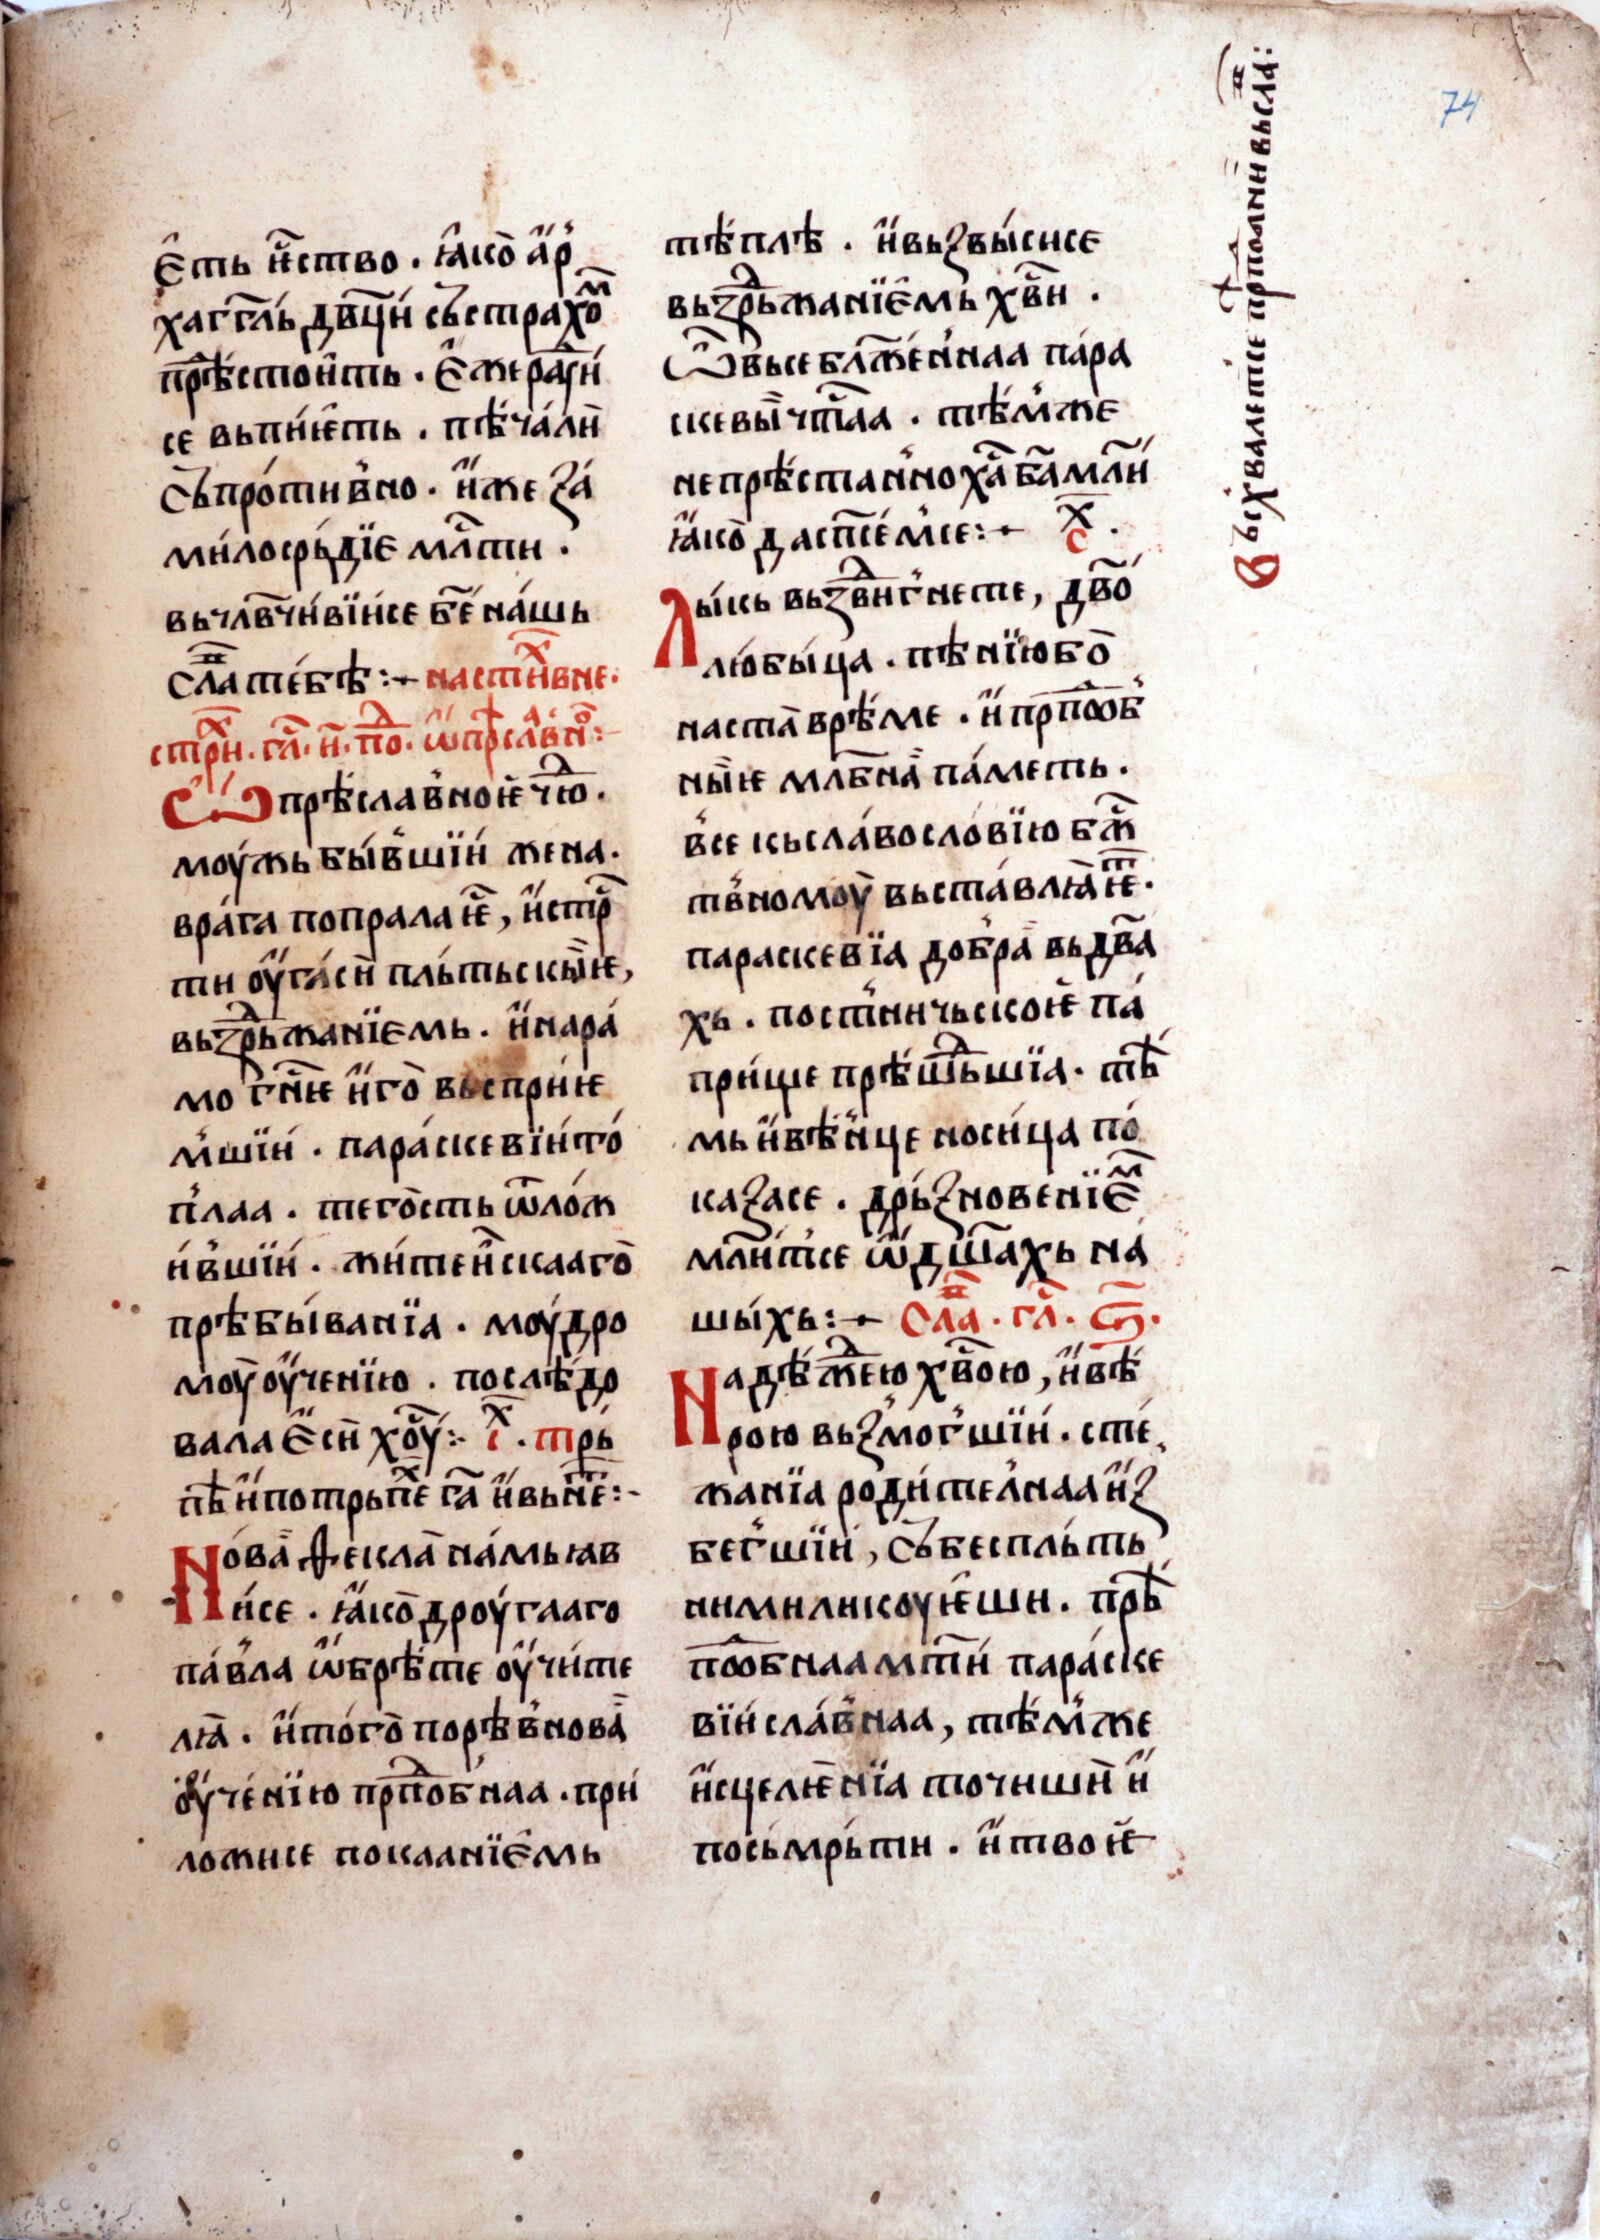 74
Вьсхвалетсе прⷣпо́лнивьсⷧ҇а:
Е҆сть є҆҃ство . ꙗ҆ко̀ а҆р
хагг҃ль дв҃ци сьстрахоⷨ
прѣ́стои҆ть . Е҆же раⷣи
се вьпи́ѥть . пѣча́лн
Сьпро́тивно . и҆же за́
ми́лосрь́дїе млⷭ҇ти .
вьчл҃вчи́вїисе бж҃е на́шь
слⷡ҇а тебѣ :~ настиⷯвне .
стрⷯи . гл҃ . и҃ . поⷣ . ѡ҆прѣсла́вно :
Ѡ прѣ́славноѥ чюⷣ .
моу́жь бы́вшїи жена .
вра́га попралаѥ҆ⷭ, и҆стрⷭ҇
ти оу҆га́си пль́тьскыѥ,
вьздрь́жанїемь . и҆нара́
мо гн҃ѥ и҆го̀ вьсприѥ
м́шїи . пара́скевїи то́
п́лаа . тего́сть ѿло́ж
и́вшїи . жи́теи҆скааго̀
прѣбы́ванїа . моу́дро
моу̀ оу҆ченїю . послѣ́до
вала Е҆си хоⷭ҇у :~ і҃ . трь́
пѣ и҆потрьпе гⷭ҇а и҆вьне :~
Но́ва Ѳеклана́мь ꙗв
и́се . ꙗ҆ко̀ дроу́гааго
па́вла ѡ҆брѣ́те оу҆чи́те
лꙗ̀ . и҆то́го̀ порѣ́внова
оу҆че́нїю прⷣпо́бнаа . при
ложисе покаанїЕ҆мь
тѣ́плѣ . и҆вьзвы́сисе
вьздрь́жанїЕ҆мь хв҃и .
Ѽ вьсебл҃же́н́наа па́ра
скевы̀ чⷭ҇тнаа . тѣ́м́же
непрѣ́стан́но хⷭ҇а бг҃а мл҃и́
ꙗ҆ко̀ да спⷭ҇е́м́се :~ х҃ с .
Лы́кь вьздви́ѓнете, дв҃о́
лю́бы́ца . пѣ́нїю бо̀
настⷭ҇а врѣ́ме . и҆ прⷣпоѡб́
ны̀ѥ мл҃бна̀ па́меть .
в́се кьсла́восло́вїю бжⷭ҇
тв́номоу̀ вьста́влꙗѥⷮ .
параскевїа до́б́ра вь дв҃а
хь . пост́ничьскоѥ̀ па́
при́ще прѣ́шⷣьшїа . тѣ́
мь и҆вѣ́н́це носи́ца по́
казасе . дрь́зновенїЕⷨ
мл҃и́тсе ѡ҆ дш҃ахь на́
шы́хь :~ Слⷡ҇а . гл҃ . ѕ҃ .
Надѣ́жⷣею хв҃ою, и҆вѣ́
рою вьз́моѓшїи . сте́
жанїа роди́телнаа и҆з
беѓшїи, сьбеспль́ть
нимиликоуѥ҆ши . прѣ́
поⷣо́бнаа мт҃и пара́ске
вїи сла́в́наа, тѣ́м́же
и҆сцелѥ̀нїа точишѝ и҆
посьмрь́ти . и҆ твоѥ̀